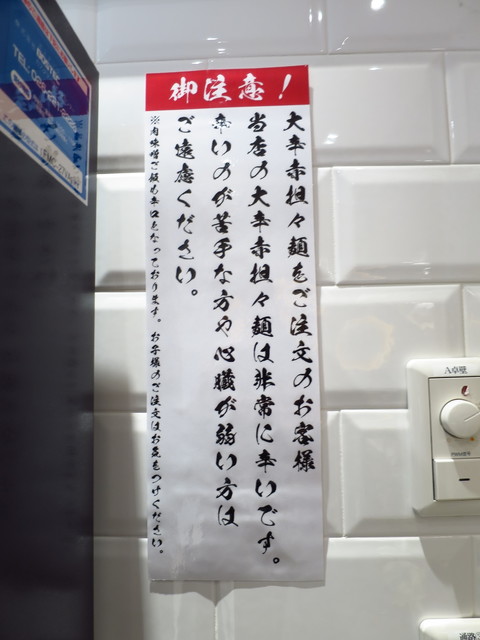 御注意！
大辛赤担々麺をご注文のお客様
当店の大辛赤担々麺は非常に辛いです。
辛いのが苦手な方や心臓が弱い方は
ご遠慮ください。
※肉味噌ご飯も辛口となっております。 お子様のご注文はお気をつけください。
A卓壁